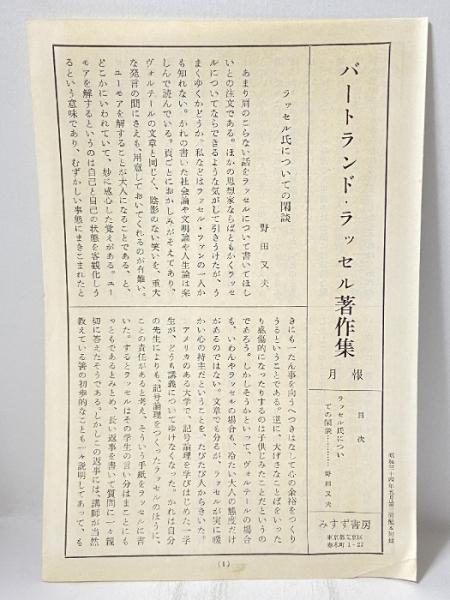 バートランド・ラッセル著作集
月報
目次
ラッセル氏につい
ての閑談…………野田又夫
みすず書房
東京都文京区
春木町1－22
ラッセル氏についての閑談
野田又夫
あまり肩のこらない話をラッセルについて書いてほし
いとの注文である。ほかの思想家ならばともかくラッセ
ルについてならできるような気がして引きうけたが、う
まくゆくかどうか。私などはラッセル・ファンの一人か
も知れない。かれの書いた社会論や文明論や人生論は楽
しんで読んでいる。頁ごとにおかしみがそえてあり、
ヴォルテールの文章と同じく、陰影のない笑いを、重大
な発言の間にさえも、用意しておいてくれるのが有難い。
ユーモアを解することが大人になることである、と、
どこかにいわれていて、妙に感心した覚えがある。ユー
モアを解するというのは自己と自己の状態を客観化しう
るという意味であり、むずかしい事態にまきこまれたと
きにも一たん事を向うへつきはなして心の余裕をつくり
うるということである。逆に、大げさなことばをいった
り感傷的になったりするのは子供じみたことだというの
であろう。しかしそうかといって、ヴォルテールの場合
も、いわんやラッセルの場合も、冷たい大人の態度だけ
があるのではない。文章でも分るが、ラッセルが実に暖
かい心の持主だということを、たびたび人からきいた。
アメリカのある大学で、記号論理を学びはじめた一学
生が、どうも講義についてゆけなくなった。かれは自分
の先生よりも、記号論理をつくったラッセルのほうに、
ことの責任があると考え、そういう手紙をラッセルに書
いた。するとラッセルはその学生の言い分はまことにも
っともであるとみとめ、長い返事を書いて質問に一々親
切に答えたそうである。しかしこの返事には、講師が当然
教えている筈の初歩的なことも一々説明してあって、も
(1)